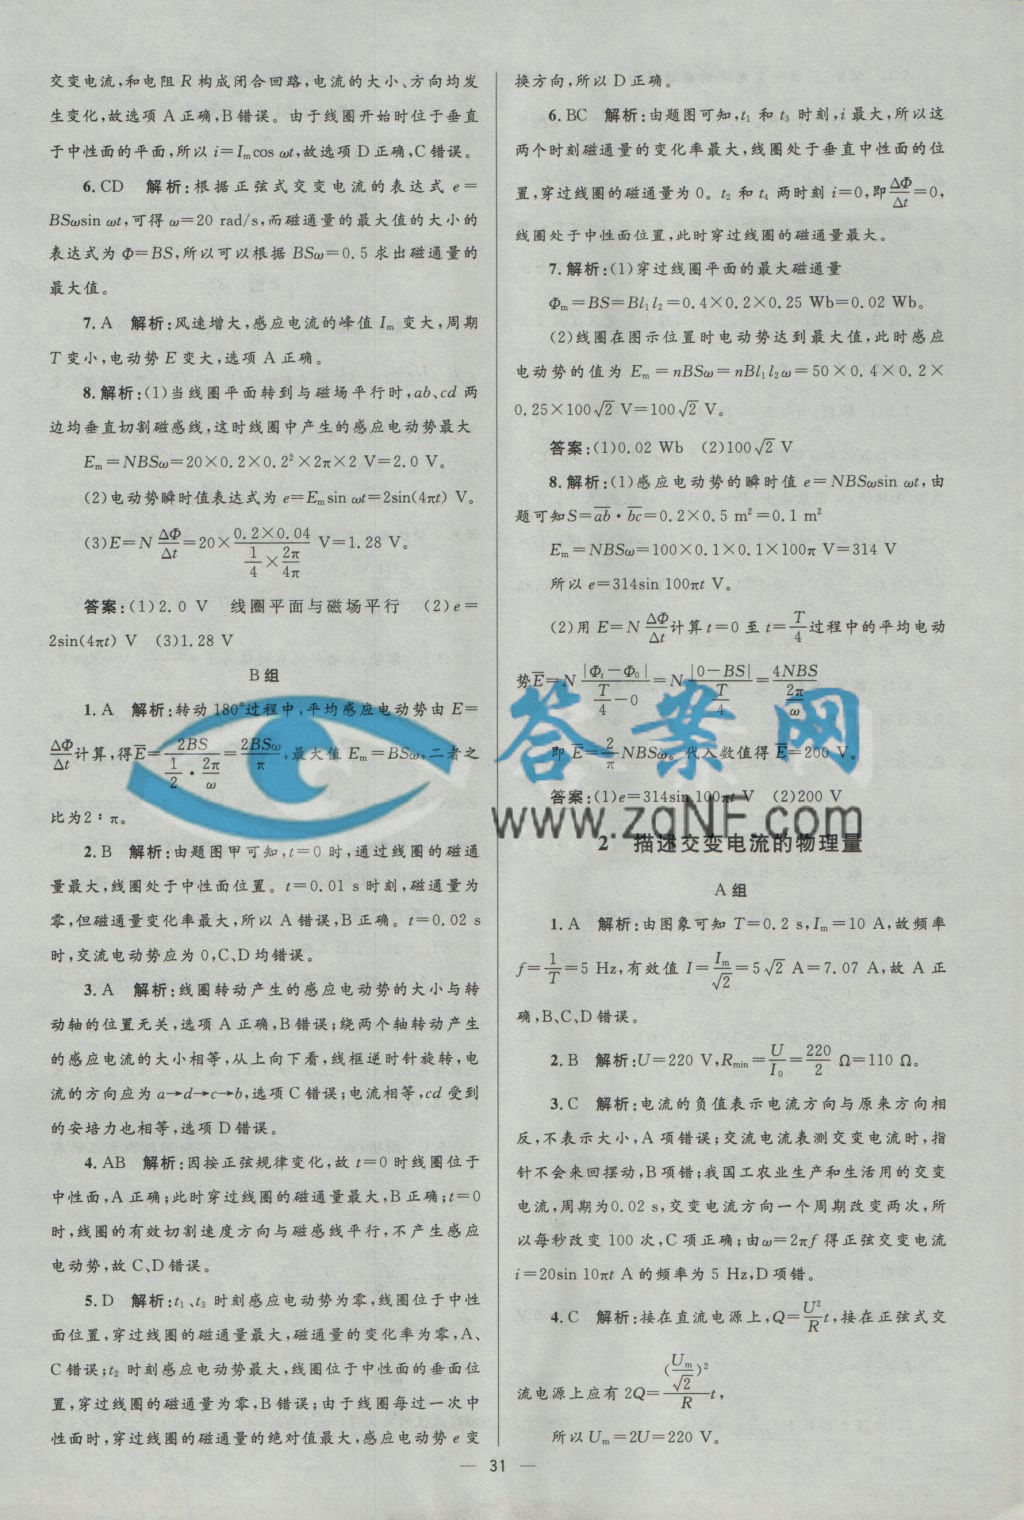 交变电流,和电阻 R 构成闭合回路,电流的大小、方向均发
生变化,故选项 A 正确,B 错误。由于线圈开始时位于垂直
于中性面的平面,所以 i=Iₘcos ωt,故选项 D 正确,C 错误。
6. CD 解析:根据正弦式交变电流的表达式 e=
BSωsin ωt,可得 ω=20 rad/s,而磁通量的最大值的大小的
表达式为 Φ=BS,所以可以根据 BSω=0.5 求出磁通量的
最大值。
7. A 解析:风速增大,感应电流的峰值 Iₘ 变大,周期
T 变小,电动势 E 变大,选项 A 正确。
8. 解析:(1)当线圈平面转到与磁场平行时,ab、cd 两
边均垂直切割磁感线,这时线圈中产生的感应电动势最大
Eₘ=NBSω=20×0.2×0.2²×2π×2 V=2.0 V。
(2)电动势瞬时值表达式为 e=Eₘsin ωt=2sin(4πt) V。
(3)E=N ΔΦ/Δt=20× (0.2×0.04)/(1/4×2π/4π) V=1.28 V。
答案:(1)2.0 V 线圈平面与磁场平行 (2)e=
2sin(4πt) V (3)1.28 V
B 组
1. A 解析:转动 180°过程中,平均感应电动势由 E=
ΔΦ/Δt 计算,得 E̅=2BS/(1/2·2π/ω)=2BSω/π,最大值 Eₘ=BSω,二者之
比为2∶π。
2. B 解析:由题图甲可知,t=0 时,通过线圈的磁通
量最大,线圈处于中性面位置。t=0.01 s 时刻,磁通量为
零,但磁通量变化率最大,所以 A 错误,B 正确。t=0.02 s
时,交流电动势应为 0,C、D 均错误。
3. A 解析:线圈转动产生的感应电动势的大小与转
动轴的位置无关,选项 A 正确,B 错误;绕两个轴转动产生
的感应电流的大小相等,从上向下看,线框逆时针旋转,电
流的方向应为 a→d→c→b,选项 C 错误;电流相等,cd 受到
的安培力也相等,选项 D 错误。
4. AB 解析:因按正弦规律变化,故 t=0 时线圈位于
中性面,A 正确;此时穿过线圈的磁通量最大,B 正确;t=0
时,线圈的有效切割速度方向与磁感线平行,不产生感应
电动势,故 C、D 错误。
5. D 解析:t₁、t₃ 时刻感应电动势为零,线圈位于中性
面位置,穿过线圈的磁通量最大,磁通量的变化率为零,A、
C 错误;t₂ 时刻感应电动势最大,线圈位于中性面的垂面位
置,穿过线圈的磁通量为零,B 错误;由于线圈每过一次中
性面时,穿过线圈的磁通量的绝对值最大,感应电动势 e 变
换方向,所以 D 正确。
6. BC 解析:由题图可知,t₁ 和 t₃ 时刻,i 最大,所以这
两个时刻磁通量的变化率最大,线圈处于垂直中性面的位
置,穿过线圈的磁通量为 0。t₂ 和 t₄ 两时刻 i=0,即ΔΦ/Δt=0,
线圈处于中性面位置,此时穿过线圈的磁通量最大。
7. 解析:(1)穿过线圈平面的最大磁通量
Φₘ=BS=Bl₁l₂=0.4×0.2×0.25 Wb=0.02 Wb。
(2)线圈在图示位置时电动势达到最大值,此时感应
电动势的值为 Eₘ=nBSω=nBl₁l₂ω=50×0.4×0.2×
0.25×100√2 V=100√2 V。
答案:(1)0.02 Wb (2)100√2 V
8. 解析:(1)感应电动势的瞬时值 e=NBSωsin ωt,由
题可知S=a̅b̅·b̅c̅=0.2×0.5 m²=0.1 m²
Eₘ=NBSω=100×0.1×0.1×100π V=314 V
所以 e=314sin 100πt V。
(2)用 E=N ΔΦ/Δt 计算 t=0 至 t=T/4 过程中的平均电动
势E̅=N |Φₜ−Φ₀|/(T/4−0)=N |0−BS|/(T/4)=4NBS/(2π/ω)
即 E̅=2/π NBSω。代入数值得 E̅=200 V。
答案:(1)e=314sin 100πt V (2)200 V
答案网
www.zqNF.com
2 描述交变电流的物理量
A 组
1. A 解析:由图象可知 T=0.2 s,Iₘ=10 A,故频率
f=1/T=5 Hz,有效值 I=Iₘ/√2=5√2 A=7.07 A,故 A 正
确,B、C、D 错误。
2. B 解析:U=220 V,Rmin=U/I₀=220/2 Ω=110 Ω。
3. C 解析:电流的负值表示电流方向与原来方向相
反,不表示大小,A 项错误;交流电流表测交变电流时,指
针不会来回摆动,B 项错;我国工农业生产和生活用的交变
电流,周期为0.02 s,交变电流方向一个周期改变两次,所
以每秒改变 100 次,C 项正确;由ω=2πf 得正弦交变电流
i=20sin 10πt A 的频率为 5 Hz,D 项错。
4. C 解析:接在直流电源上,Q=U²/R t,接在正弦式交
流电源上应有 2Q=(Uₘ/√2)²/R t,
所以 Uₘ=2U=220 V。
— 31 —